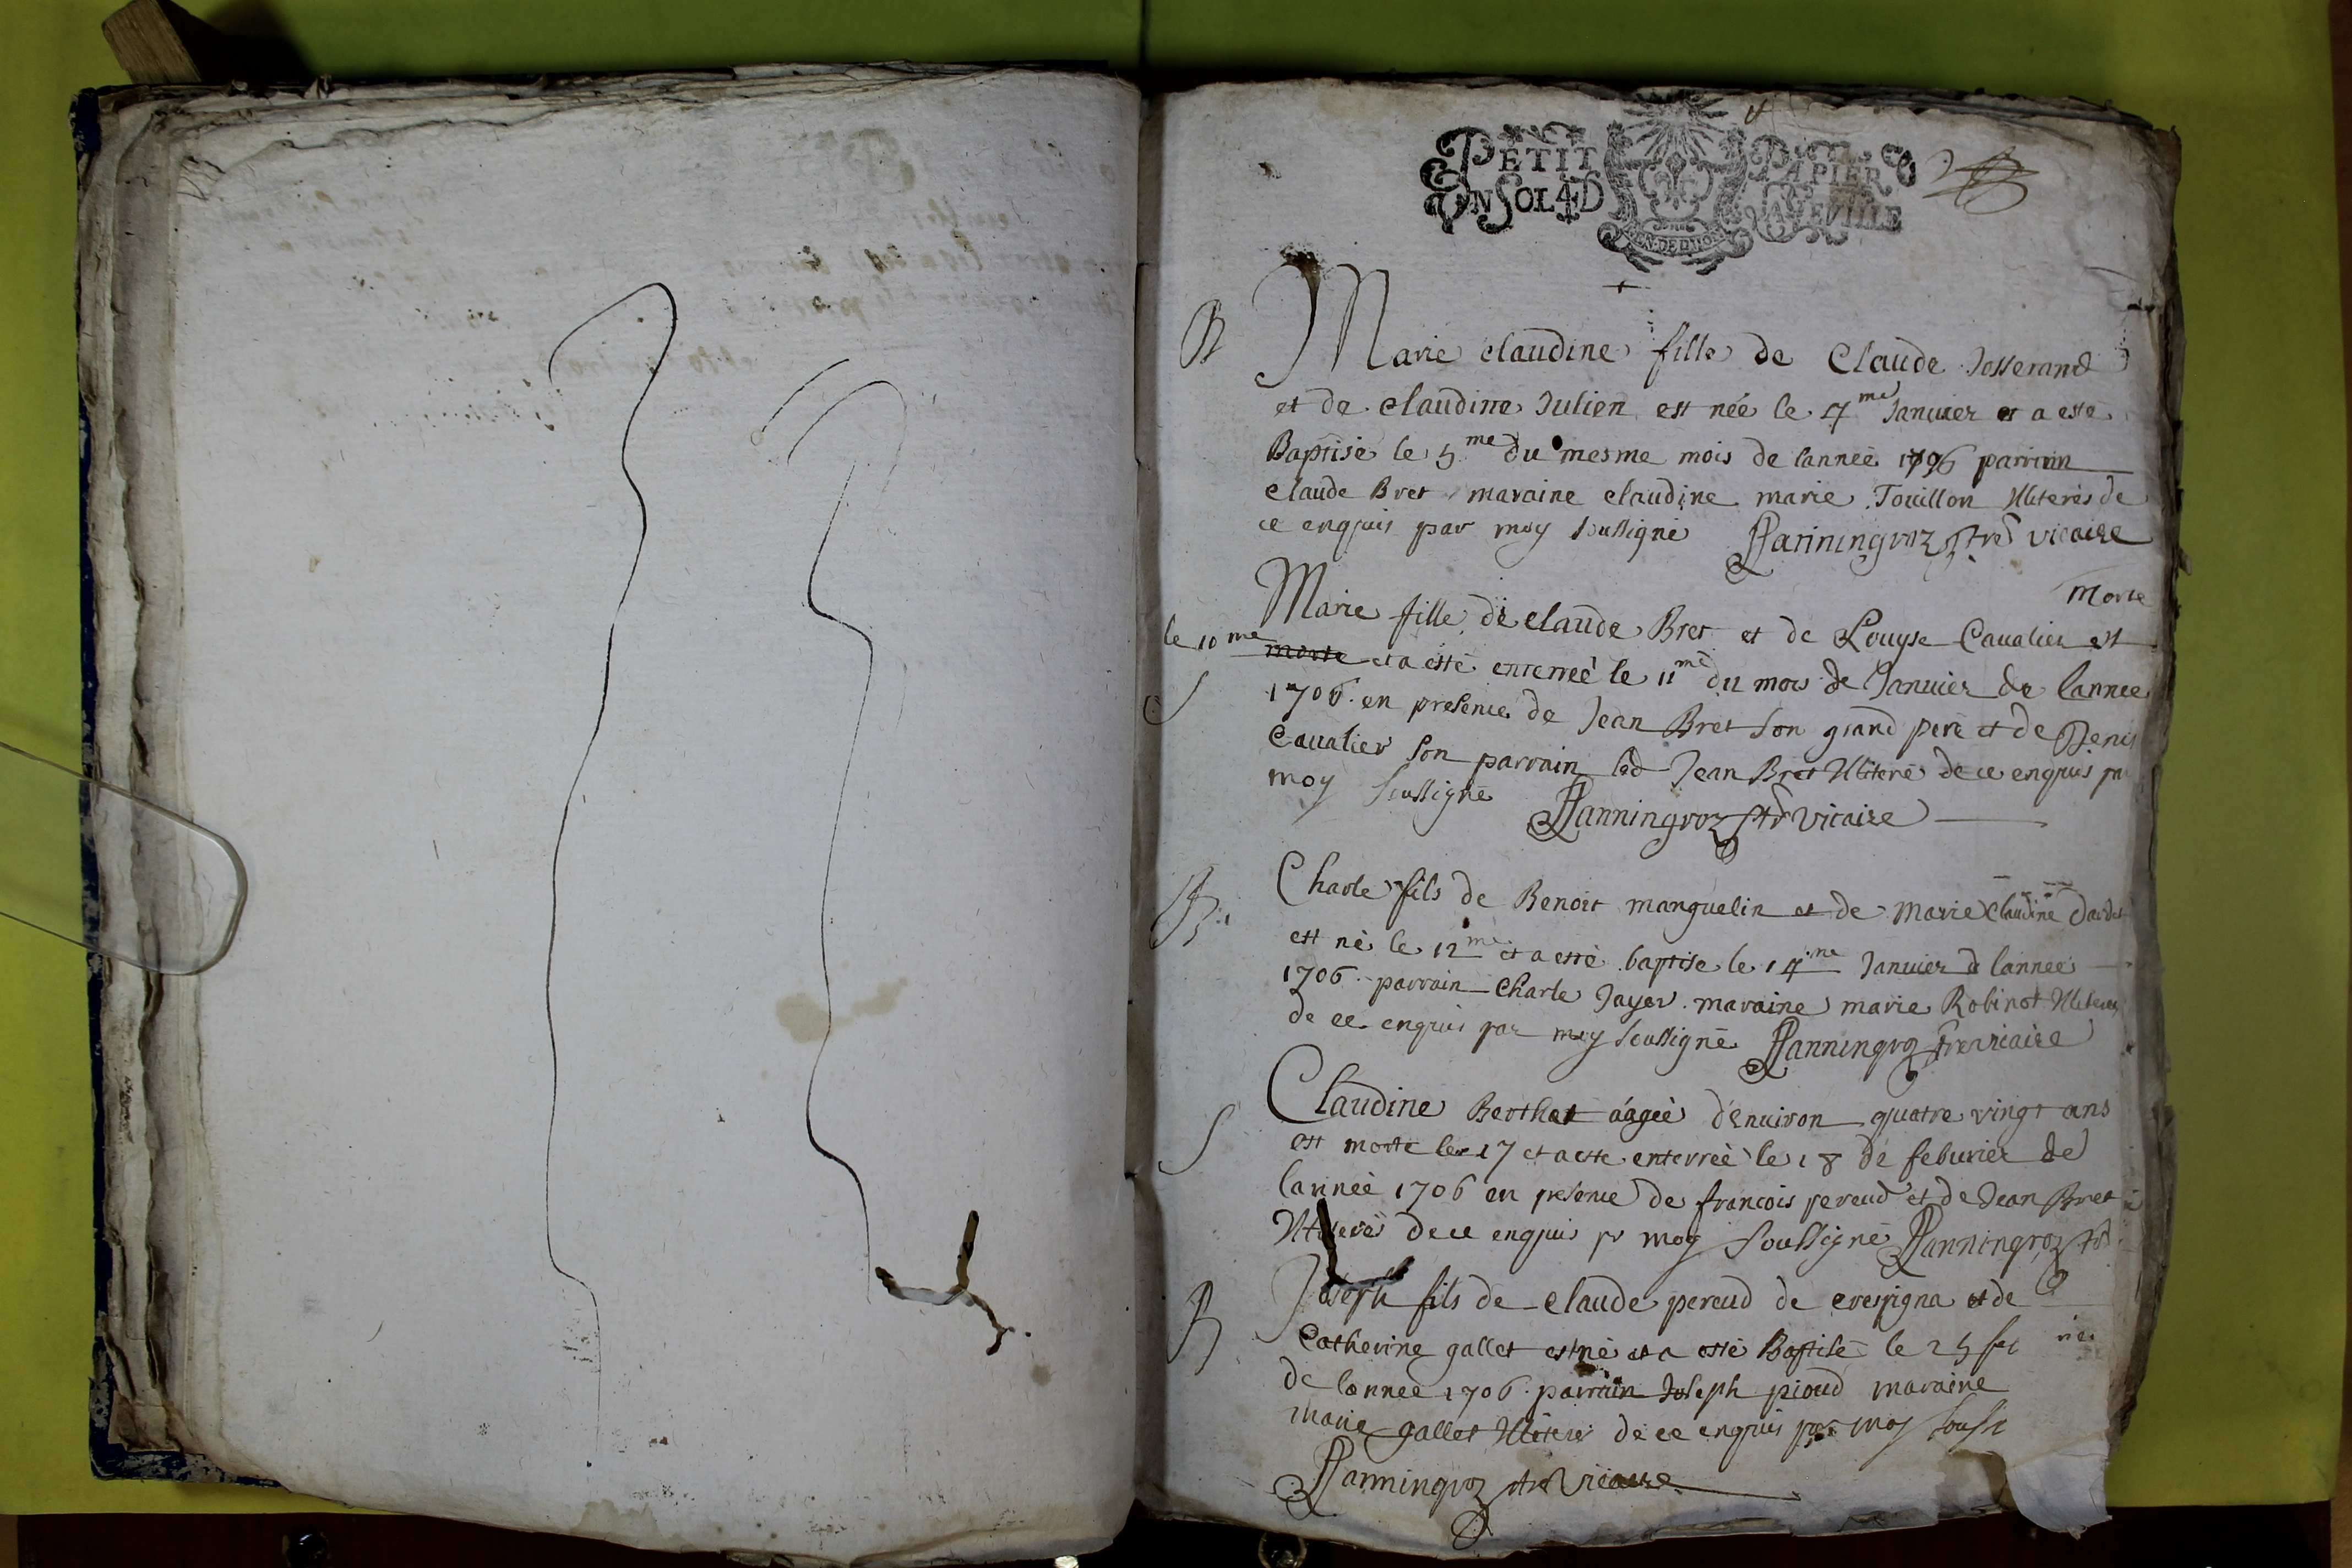 PETIT PAPIER
UN SOL 4 D
B Marie claudine fille de Claude Josserand
et de claudine Julien est née le 4me Janvier et a esté
Baptisé le 5me du mesme mois de lannee 1706 parrain
claude Bret maraine claudine marie Touillon Illiterés de
ce enquis par moy soussigné Panningroz ptre vicaire
morte
Marie fille de claude Bret et de Louyse Cavalier est
le 10me morte et a esté enterreé le 11me du mois de Janvier de lannee
S 1706 en presence de Jean Bret son grand pere et de Denis
Cavalier son parrain led Jean Bret Illiteré de ce enquis par
moy soussigné Panningroz ptre vicaire
B Charle fils de Benoit manguelin et de Marie Claudine
est né le 12me et a esté baptise le 14me Janvier d lannee
1706 parrain Charle Jayer maraine marie Robinot Illiteres
de ce enquis par moy soussigné Panningroz ptre vicaire
Claudine Berthet áageé d'environ quatre vingt ans
S est morte le 17 et a este enterreé le 18 de febvrier de
lanneé 1706 en presence de francois pereud et de Jean Bret
Illiterés de ce enquis pr moy soussigné Panningroz ptre
B Joseph fils de claude pereud de crespigna et de
Catherine gallet est né et a esté Baptisé le 25
de lannee 1706 parrain Joseph pioud maraine
marie gallet Illiteres de ce enquis par moy
Panningroz ptre vicaire